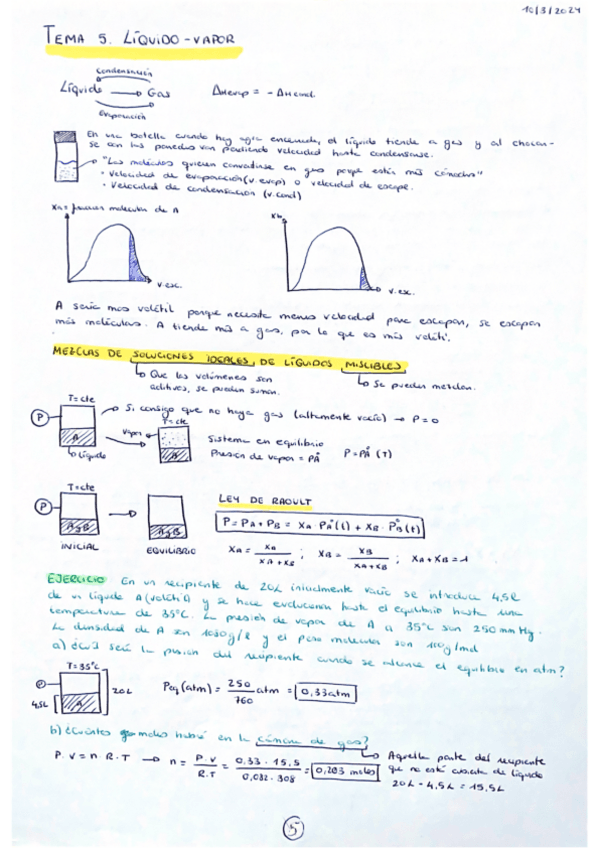 10/3/2024
TEMA 5. LÍQUIDO-VAPOR
Condensación
Líquido → Gas ΔHevap = - ΔHcond
Evaporación
En una botella cuando hay agua encerrada, el líquido tiende a gas y al chocar-
se con las paredes van perdiendo velocidad hasta condensarse.
"Las moléculas quieren convertirse en gas porque están más cómodas"
• Velocidad de evaporación (v.evap) o velocidad de escape.
• Velocidad de condensación (v.cond)
XA = fracción molecular de A
XB
v.esc.
v.esc.
A sería más volátil porque necesita menos velocidad para escapar, se escapan
más moléculas. A tiende más a gas, por lo que es más volátil.
MEZCLAS DE SOLUCIONES IDEALES DE LÍQUIDOS MISCIBLES
Que los volúmenes son
aditivos, se pueden sumar.
Se pueden mezclar.
T=cte
P
A
Líquido
Si consigo que no haya gas (altamente vacío) → P=0
Vapor
T=cte
A
Sistema en equilibrio
Presión de vapor = PA° P=PA°(T)
T=cte
P
A y B
INICIAL
A y B
EQUILIBRIO
LEY DE RAOULT
P = PA + PB = XA · PA°(t) + XB · PB°(t)
XA = XA / XA + XB ; XB = XB / XA + XB ; XA + XB = 1
EJERCICIO En un recipiente de 20L inicialmente vacío se introduce 4,5L
de un líquido A (volátil) y se hace evolucionar hasta el equilibrio hasta una
temperatura de 35°C. La presión de vapor de A a 35°C son 250 mm Hg.
La densidad de A son g/l y el peso molecular son g/mol
a) ¿Cuál será la presión del recipiente cuando se alcance el equilibrio en atm?
T=35°C
P
4,5L
20L
Peq (atm) = 250 / 760 atm = 0,33 atm
b) ¿Cuántos moles habrá en la cámara de gas?
P.V = n R.T → n = P.V / R.T = 0,33 · 15,5 / 0,082 · 308 = 0,203 moles
Aquella parte del recipiente
que no está cubierta de líquido
20L - 4,5L = 15,5L
5